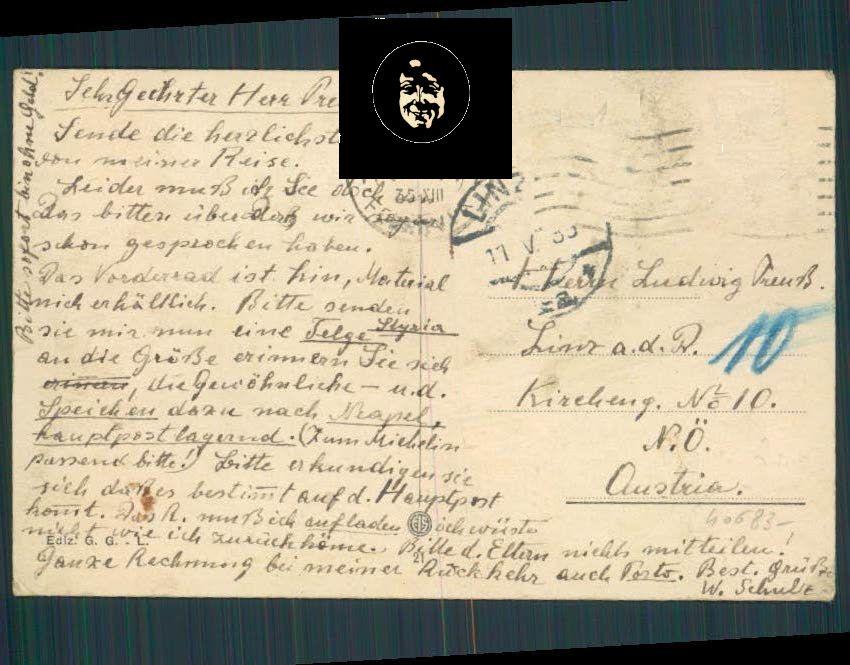 Sehr Geehrter Herr Preu
Sende die herzlichst
von meiner Reise.
Leider muß ich Sie doch
Das bitten über Daß wir
schon gesprochen haben.
Das Vorderrad ist hin, Material
nich erhältlich. Bitte senden
sie mir nun eine Felge Styria
an die Größe erinnern Sie sich
, die Gewöhnliche – u.d.
Speichen dazu nach Neapel,
hauptpostlagernd. (Zum Michelin
passend bitte!) Bitte erkundigen sie
sich daß es bestimt auf d. Hauptpost
komt. Das R. muß ich aufladen ich wüste
nicht wie ich zurück köme. Bitte d. Eltern nichts mitteilen!
Ganze Rechnung bei meiner Rückkehr auch Porto. Best. Grüße
W. Schulz
Bitte sofort hin ohne Geld!
35 XIII
LINZ
11 V 35
Herrn Ludwig Preuß.
Linz a.d.D.
10
Kircheng. No 10.
N.Ö.
Austria.
40683-
Ediz. G. G. - L.
21